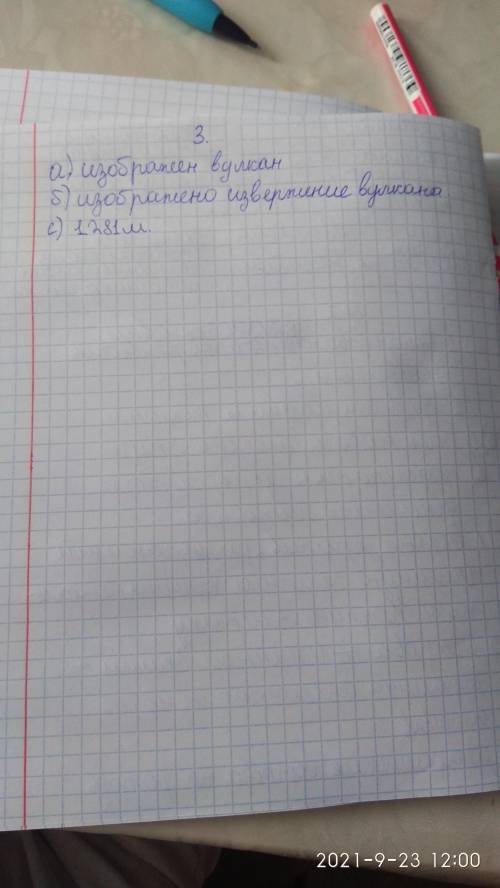 3.
а) изображен вулкан
б) изображено извержение вулкана.
с) 1281м.
2021-9-23 12:00